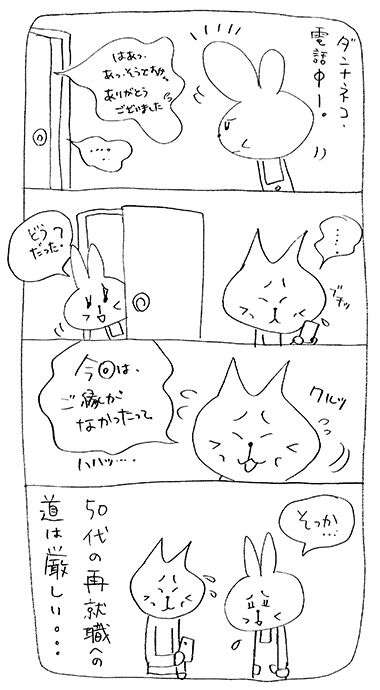 ダンナネコ、
電話中ー。
はあっ、
あっ、そうですか…
ありがとう
ございました
・・・・・
・・・・
プチッ
どう
だった?
クルッ
今回は、
ご縁が
なかったって
ハハッ・・・・
そっか
・・・
50代の再就職への
道は厳しい。。。